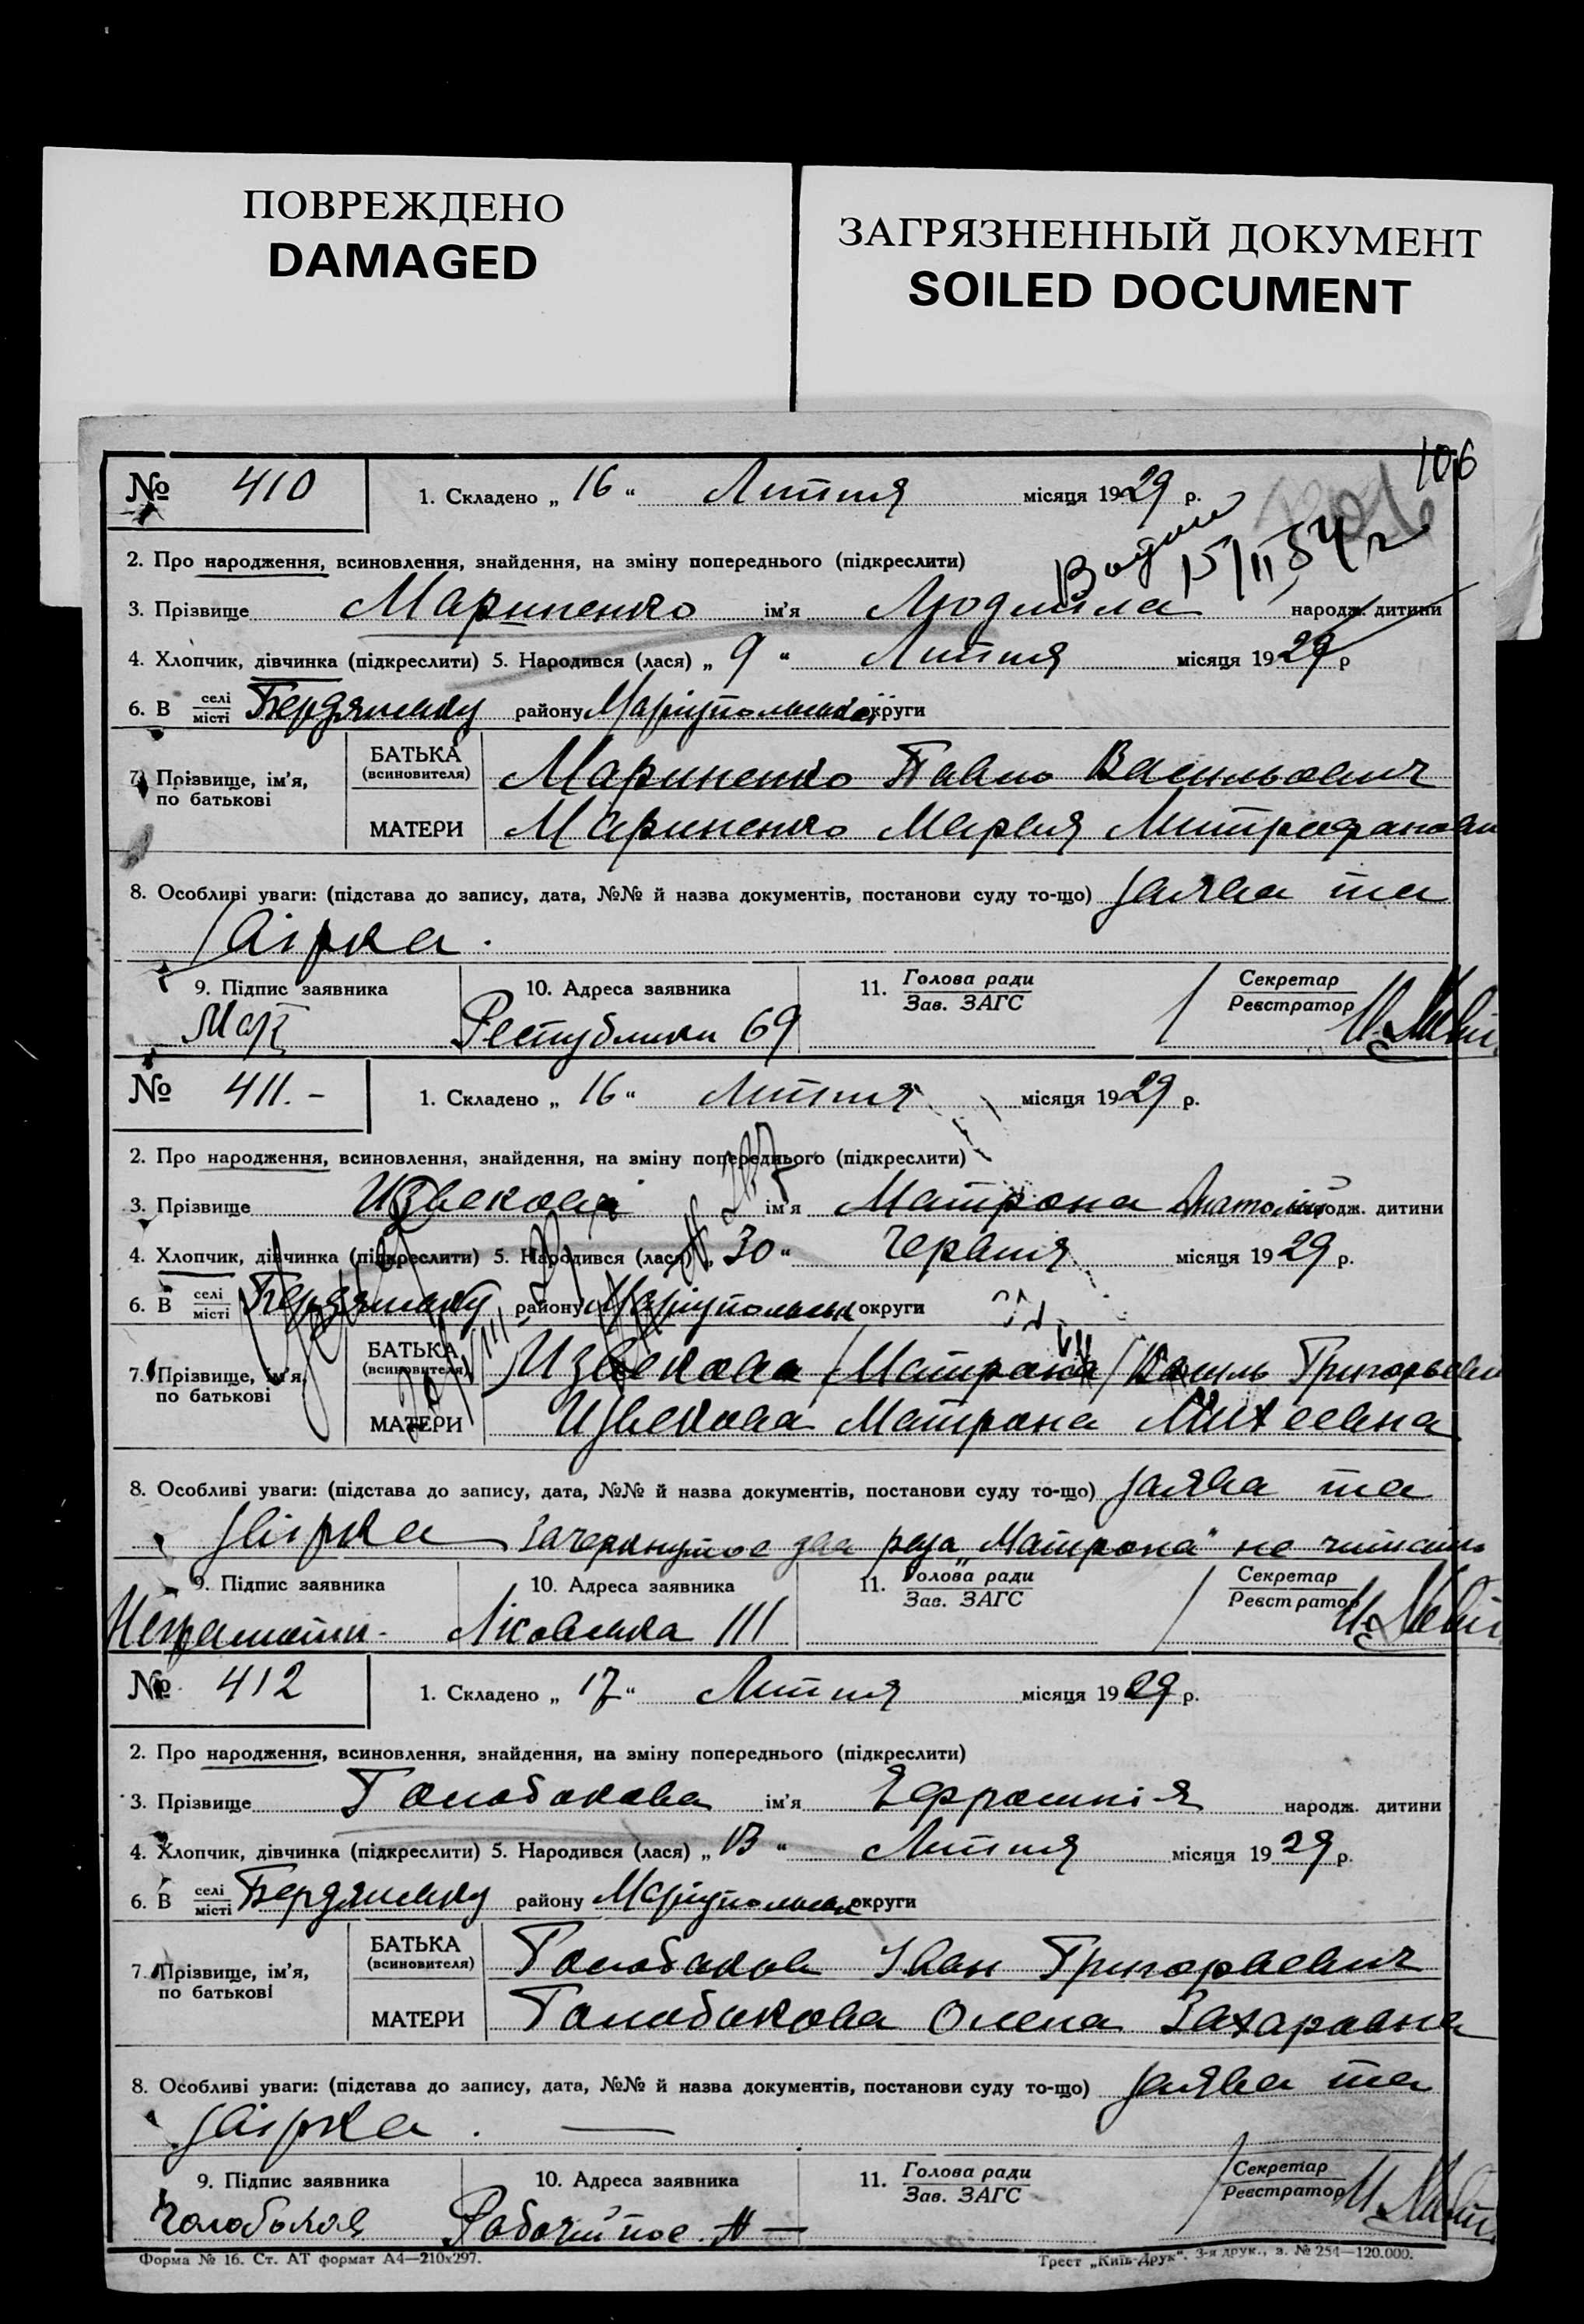 ПОВРЕЖДЕНО
DAMAGED
ЗАГРЯЗНЕННЫЙ ДОКУМЕНТ
SOILED DOCUMENT
106
№ 410 1. Складено „ 16 “ Липня місяця 1929 р.
15/II 54 г
2. Про народження, всиновлення, знайдення, на зміну попереднього (підкреслити)
3. Прізвище Мариненко ім’я Людмила народж. дитини
4. Хлопчик, дівчинка (підкреслити) 5. Народився (лася) „ 9 “ Липня місяця 1929 р
6. В селі місті Бердянську району Маріупольської округи
7. Прізвище, ім’я, по батькові БАТЬКА (всиновителя) Мариненко Павло Васильович
МАТЕРИ Мариненко Мария Митрофанован
8. Особливі уваги: (підстава до запису, дата, №№ й назва документів, постанови суду то-що) заява та
звірка.
9. Підпис заявника 10. Адреса заявника 11. Голова ради Зав. ЗАГС Секретар Реєстратор
Республики 69
№ 411. - 1. Складено „ 16 “ Липня місяця 1929 р.
2. Про народження, всиновлення, знайдення, на зміну попереднього (підкреслити)
3. Прізвище Извеков ім’я Матрона Анатолій народж. дитини
4. Хлопчик, дівчинка (підкреслити) 5. Народився (лася) „ 30 “ Червня місяця 1929 р.
6. В селі місті Бердянську району Маріупольськ округи
7. Прізвище, ім’я, по батькові БАТЬКА (всиновителя) Извекова /Матрона/ Василь Григорьевич
МАТЕРИ Извекова Матрона Михеевна
8. Особливі уваги: (підстава до запису, дата, №№ й назва документів, постанови суду то-що) заява та
звірка Зачеркнутое два раза „Матрона“ не читать
9. Підпис заявника 10. Адреса заявника 11. Голова ради Зав. ЗАГС Секретар Реєстратор
Неграмотн. 111
№ 412 1. Складено „ 17 “ Липня місяця 1929 р.
2. Про народження, всиновлення, знайдення, на зміну попереднього (підкреслити)
3. Прізвище Голобокова ім’я Ефросинія народж. дитини
4. Хлопчик, дівчинка (підкреслити) 5. Народився (лася) „ 13 “ Липня місяця 1929 р.
6. В селі місті Бердянську району Маріупольськ округи
7. Прізвище, ім’я, по батькові БАТЬКА (всиновителя) Голобоков Іван Григорьевич
МАТЕРИ Голобокова Олена Захаровна
8. Особливі уваги: (підстава до запису, дата, №№ й назва документів, постанови суду то-що) заява та
звірка. —
9. Підпис заявника 10. Адреса заявника 11. Голова ради Зав. ЗАГС Секретар Реєстратор
Голобоков Рабочий пос.
Форма № 16. Ст. АТ формат А4—210x297. Трест „Київ-Друк“. 3-я друк., з. № 254—120.000.